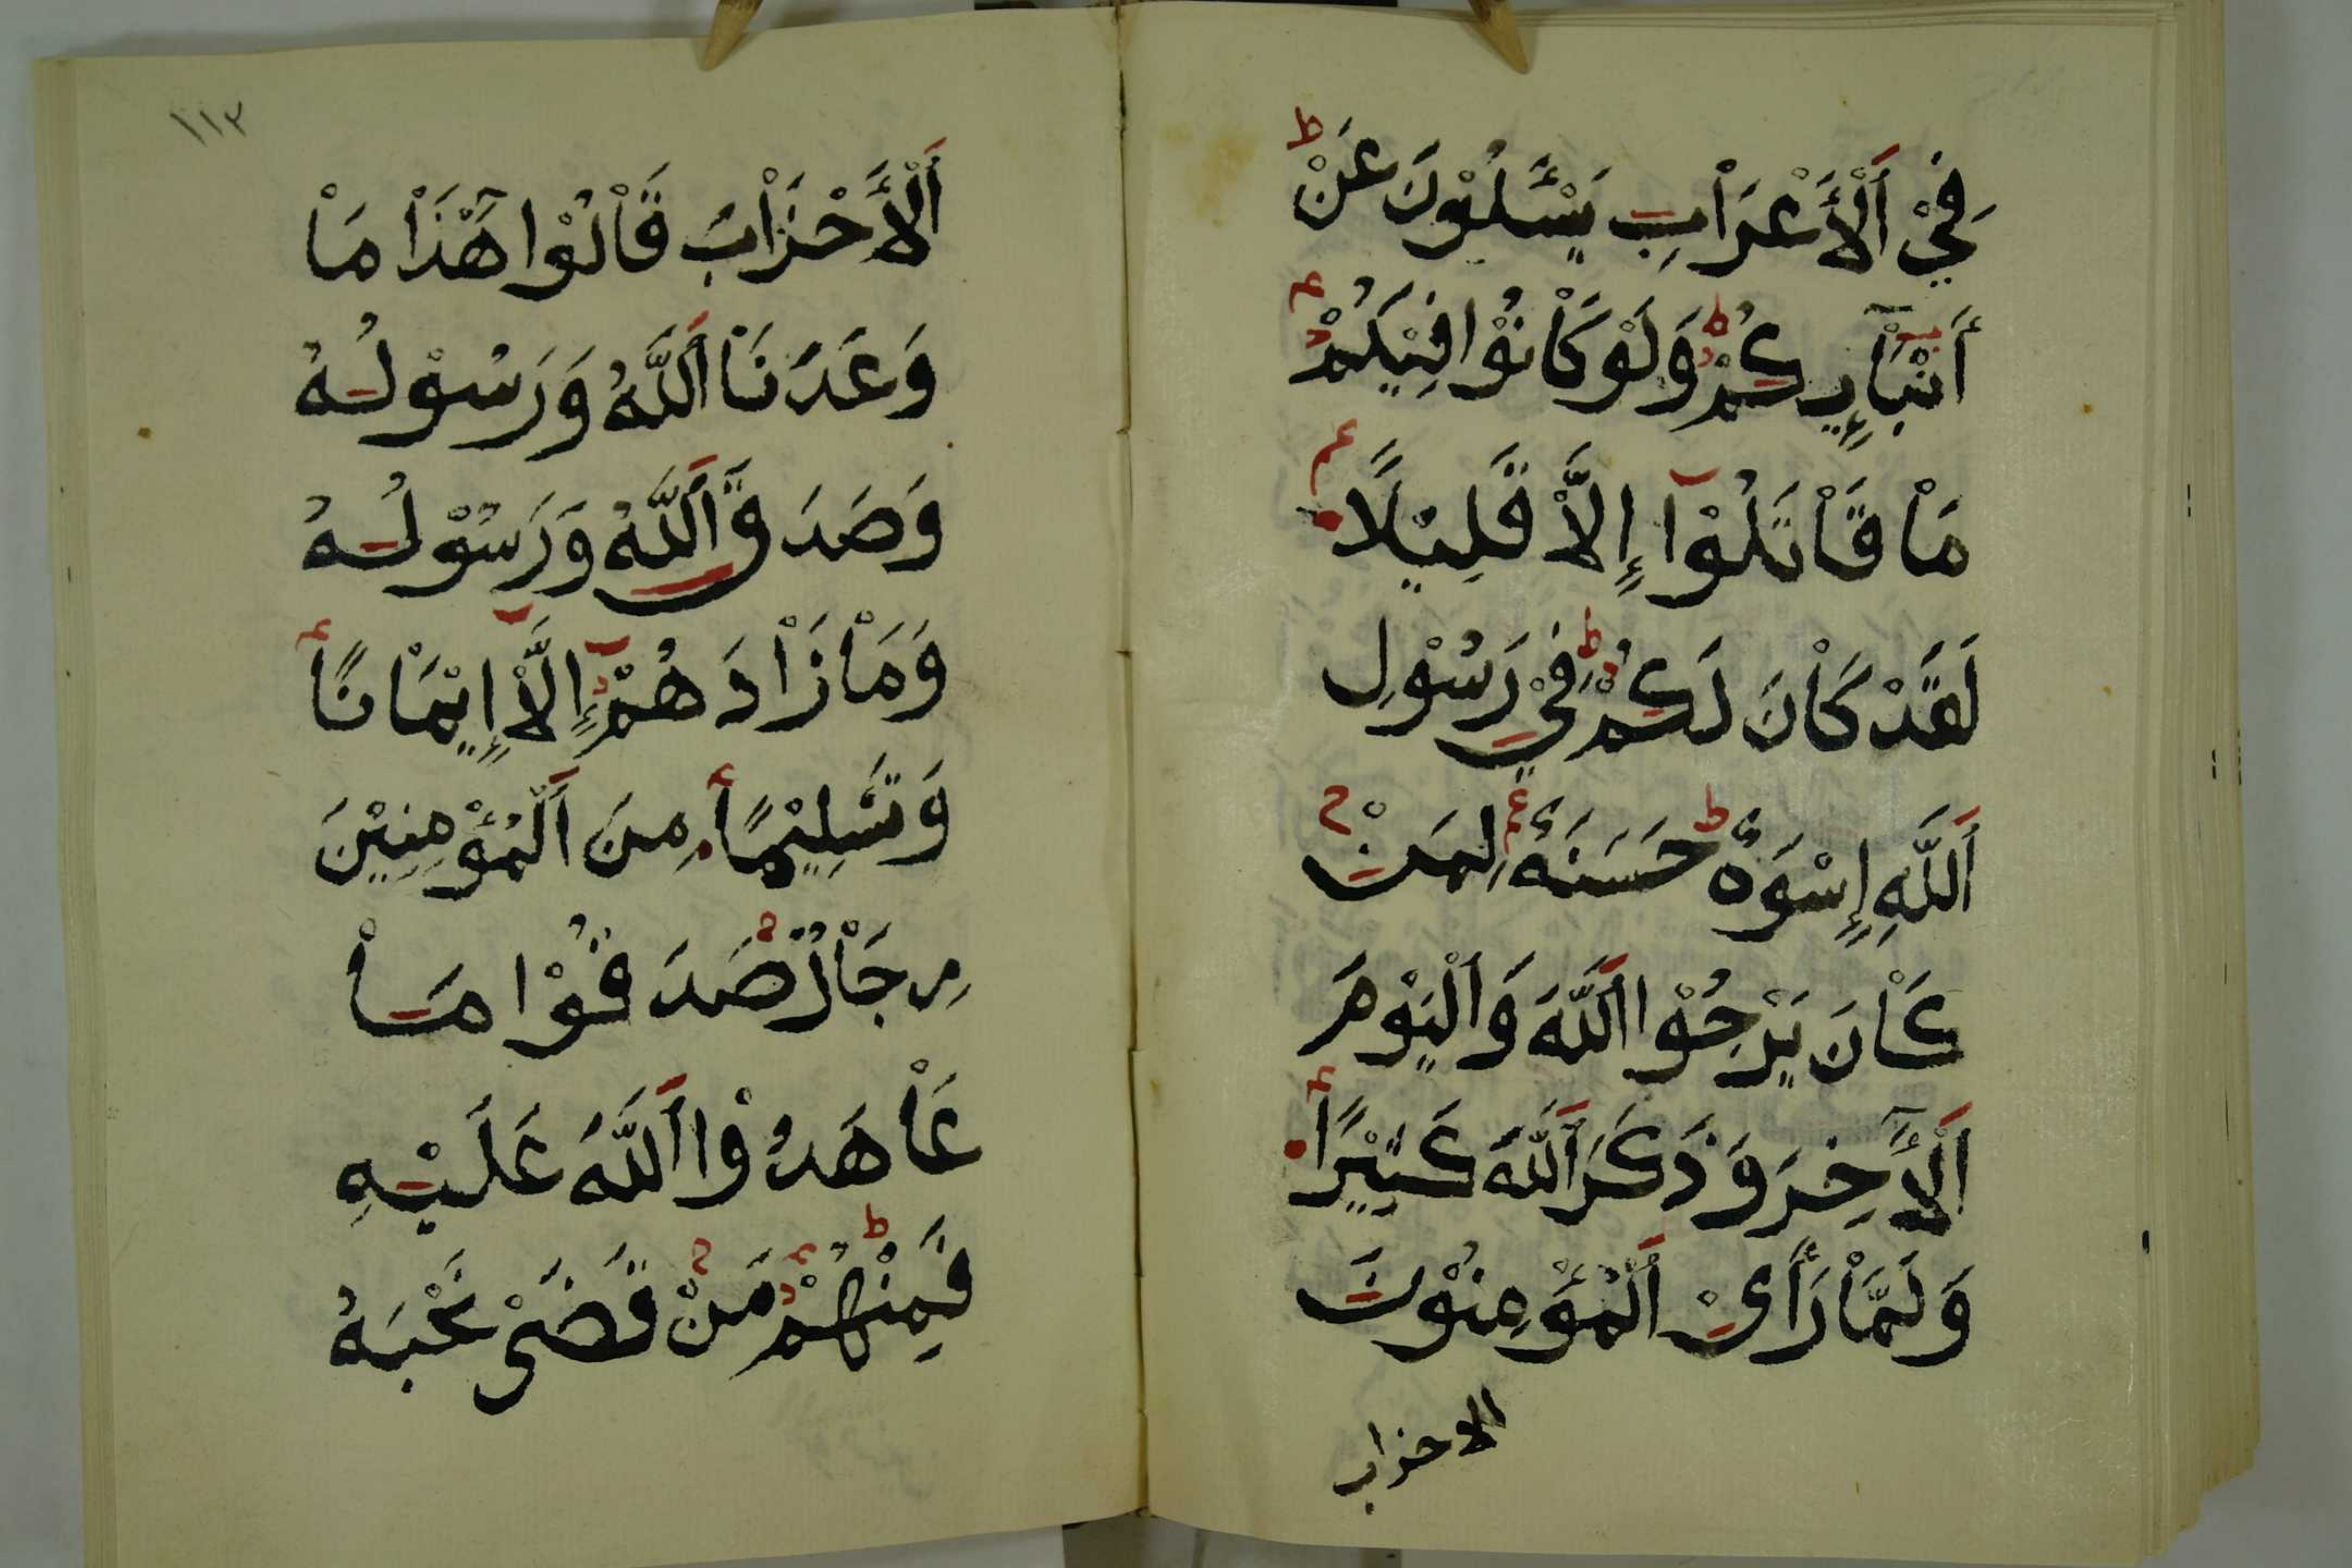 فِيْ اَلْأَعْرَاْبِ يَسْـَٔلُوْنَ عَنْ
أَنْبَآئِكُمْ وَلَوْ كَاْنُوْا فِيْكُمْ
مَاْ قَاْتَلُوْآ إِلَّاْ قَلِيْلًا
لَقَدْ كَاْنَ لَكُمْ فِيْ رَسُوْلِ
اَللَّهِ إِسْوَةٌ حَسَنَةٌ لِمَنْ
كَاْنَ يَرْجُوْا اَللَّهَ وَاَلْيَوْمَ
اَلْأَٓخِرَ وَذَكَرَ اَللَّهَ كَثِيْرًا
وَلَمَّاْ رَأَىْ اَلْمُؤْمِنُوْنَ
الاحزاب
١١٣
اَلْأَحْزَاْبَ قَاْلُوْا هَٓذَاْ مَاْ
وَعَدَنَاْ اَللَّهُ وَرَسُوْلُهُ
وَصَدَقَ اَللَّهُ وَرَسُوْلُهُ
وَمَاْ زَاْدَهُمْ إِلَّاْ إِيْمَاْنًا
وَتَسْلِيْمًا مِنَ اَلْمُؤْمِنِيْنَ
رِجَاْلٌ صَدَقُوْا مَاْ
عَاْهَدُوْا اَللَّهَ عَلَيْهِ
فَمِنْهُمْ مَنْ قَضَىْ نَحْبَهُ